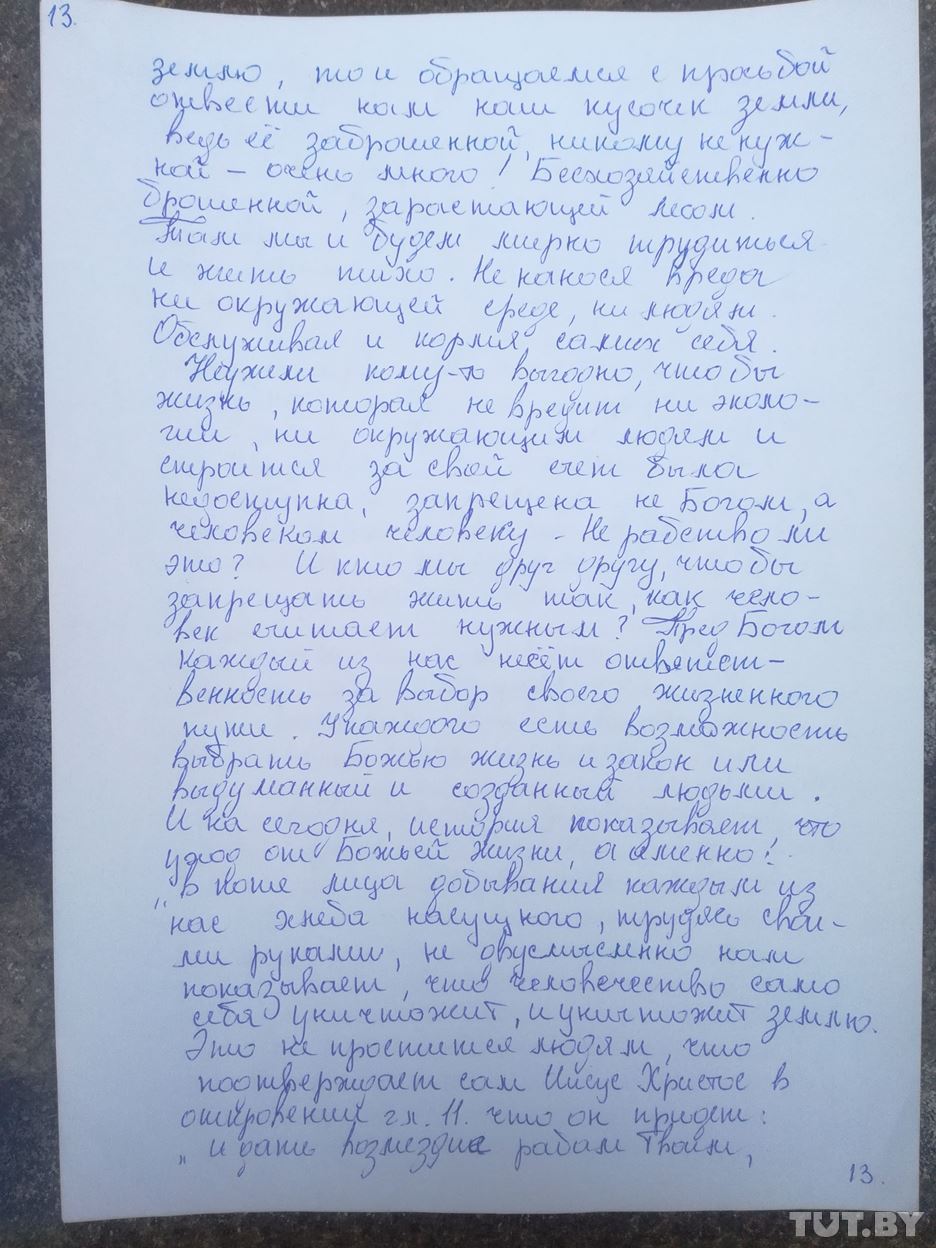 13.
землю, то и обращаемся с просьбой
отвести нам наш кусочек земли,
ведь её заброшенной, никому не нуж-
ной - очень много! Бесхозяйственно
брошенной, зарастающей лесом.
Там мы и будем мирно трудиться
и жить тихо. Не нанося вреда
ни окружающей среде, ни людям.
Обслуживая и кормя самих себя.
Неужели кому-то выгодно, чтобы
жизнь, которая не вредит ни эколо-
гии, ни окружающим людям и
строится за свой счет была
недоступна, запрещена не Богом, а
человеком человеку - Не рабство ли
это? И кто мы друг другу, чтобы
запрещать жить так, как чело-
век считает нужным? Пред Богом
каждый из нас несёт ответст-
венность за выбор своего жизненного
пути. У каждого есть возможность
выбрать Божью жизнь и закон или
выдуманный и созданный людьми.
И на сегодня, история показывает, что
уход от Божьей жизни, а именно!
"в поте лица добывания каждым из
нас хлеба насущного, трудясь свои-
ми руками, не двусмысленно нам
показывает, что человечество само
себя уничтожит, и уничтожит землю.
Это не простится людям, что
подтверждает сам Иисус Христос в
откровении гл. 11. что он придет:
"и дать возмездие рабам Твоим,
13.
TUT.BY